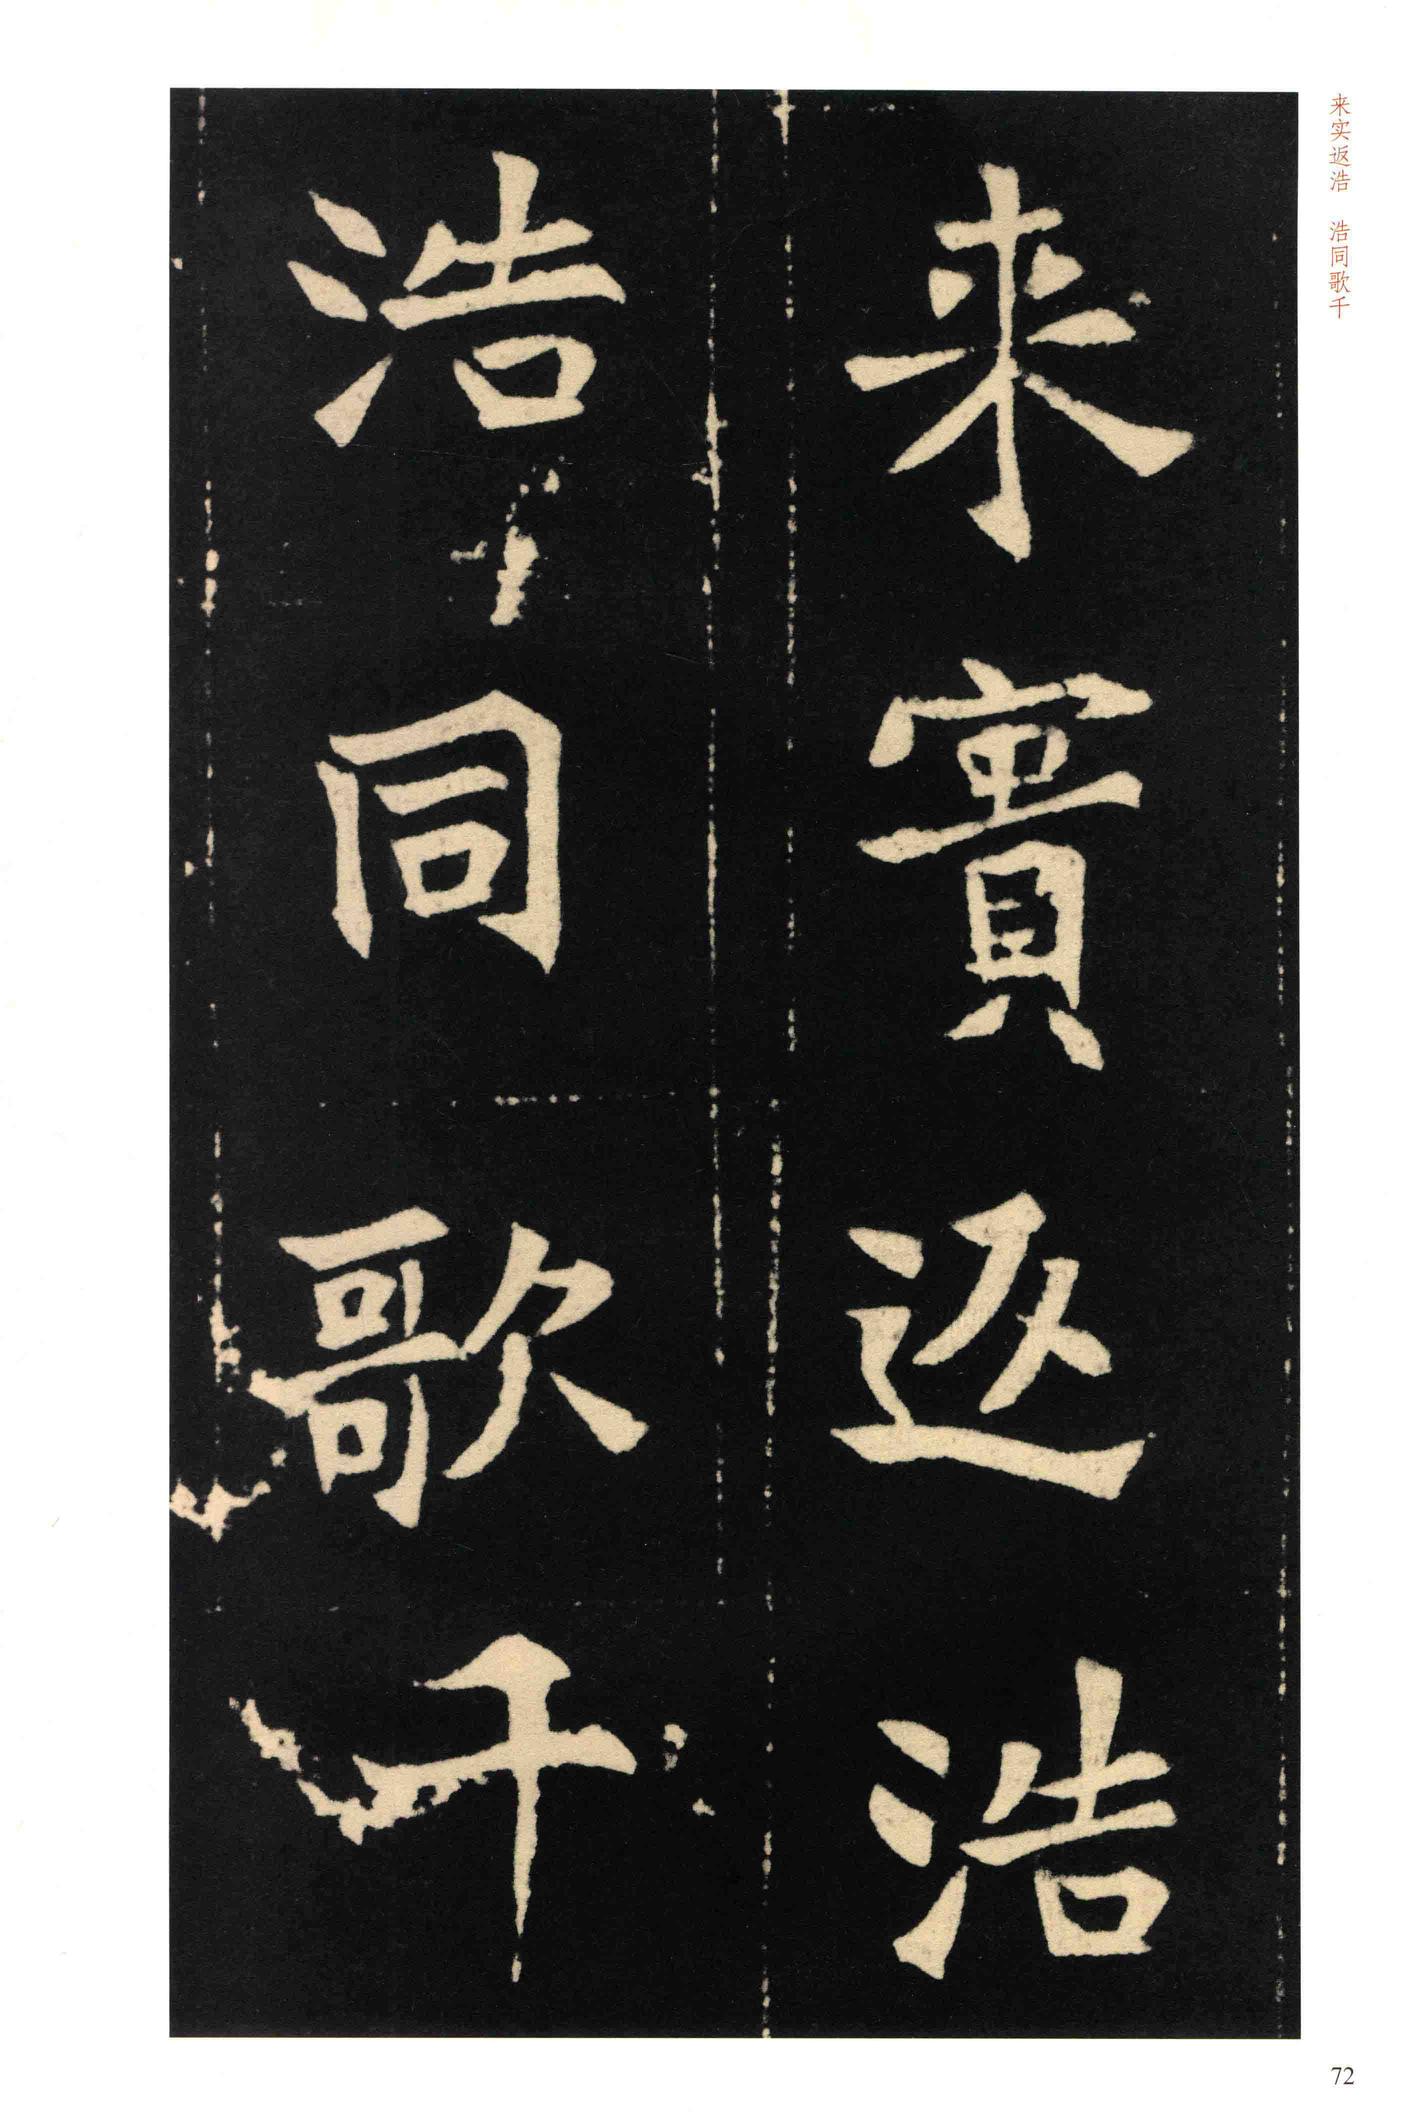 来實返浩
浩同歌千
来实返浩　浩同歌千
72